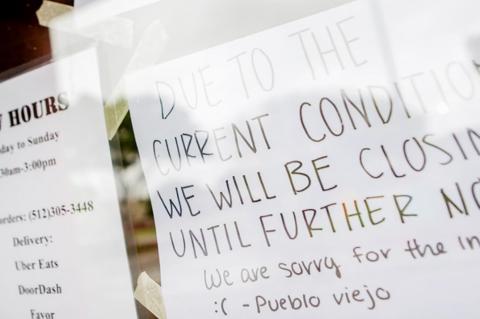 HOURS
day to Sunday
30am-3:00pm
orders: (512)305-3448
Delivery:
Uber Eats
DoorDash
Favor
DUE TO THE
CURRENT CONDITION
WE WILL BE CLOSIN
UNTIL FURTHER NO
We are sorry for the in
:( - Pueblo viejo